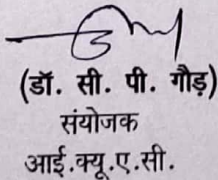 (डॉ. सी. पी. गौड़)
संयोजक
आई.क्यू.ए.सी.